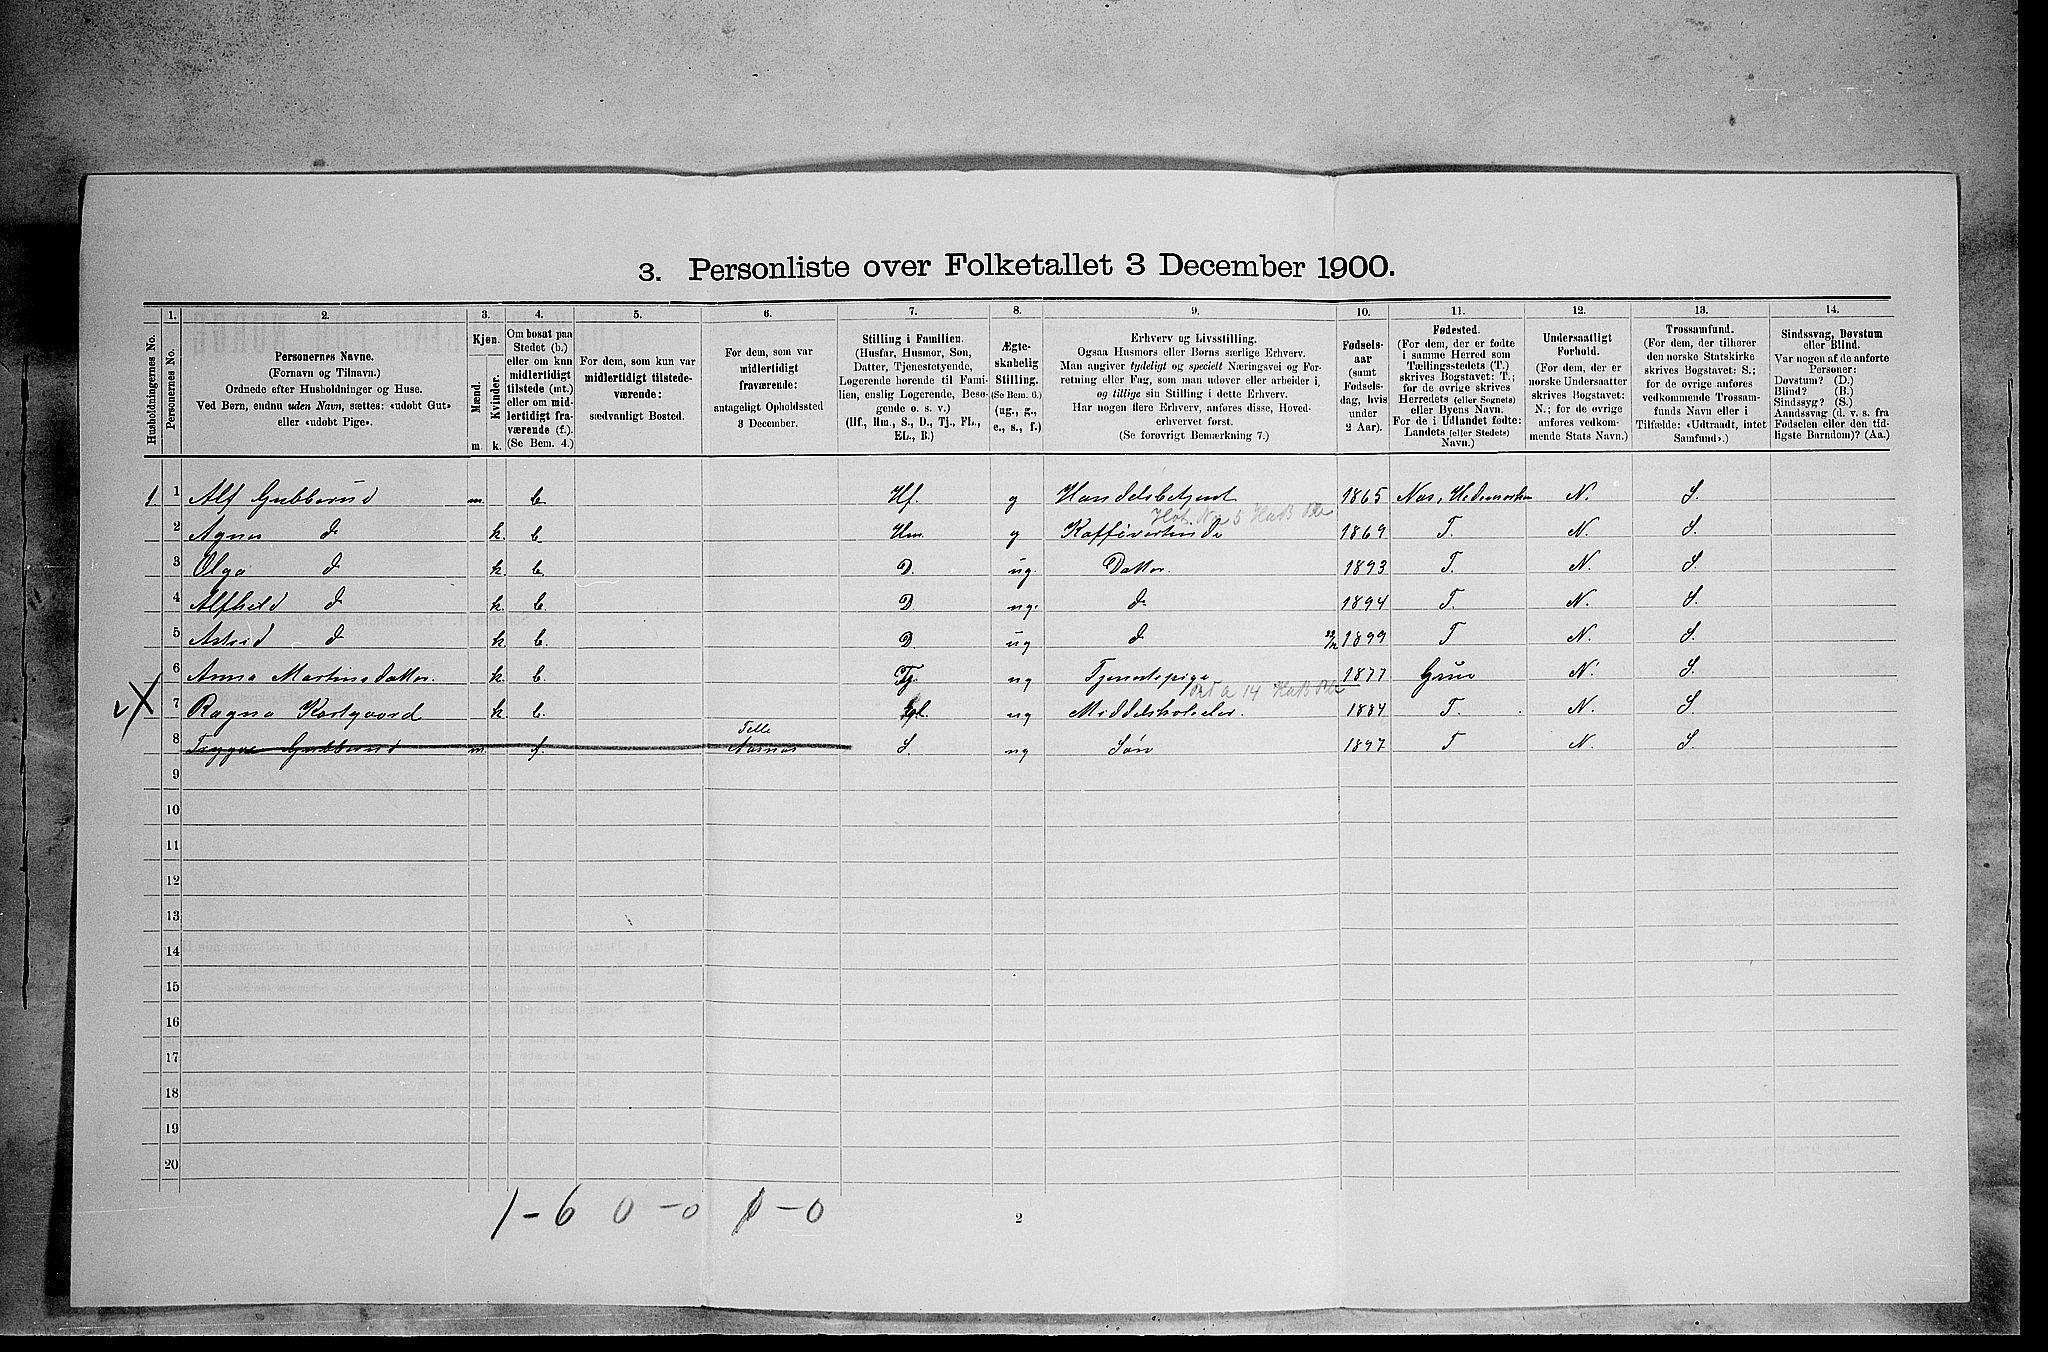 3. Personliste over Folketallet 3 December 1900.
Husholdningernes No.
1.
Personernes No.
2.
Personernes Navne.
(Fornavn og Tilnavn.)
Ordnede efter Husholdninger og Huse.
Ved Børn, endnu uden Navn, sættes: «udøbt Gut»
eller «udøbt Pige».
3.
Kjøn.
Mænd.
Kvinder.
m.
k.
4.
Om bosat paa
Stedet (b.)
eller om kun
midlertidigt
tilstede (mt.)
eller om mid-
lertidigt fra-
værende (f.).
(Se Bem. 4.)
5.
For dem, som kun var
midlertidigt tilstede-
værende:
sædvanligt Bosted.
6.
For dem, som var
midlertidigt
fraværende:
antageligt Opholdssted
3 December.
7.
Stilling i Familien.
(Husfar, Husmor, Søn,
Datter, Tjenestetyende,
Logerende hørende til Fami-
lien, enslig Logerende, Besø-
gende o. s. v.)
(Hf., Hm., S., D., Tj., FL.,
EL., B.)
8.
Ægte-
skabelig
Stilling.
(Se Bem. 6.)
(ug., g.,
e., s., f.)
9.
Erhverv og Livsstilling.
Ogsaa Husmors eller Børns særlige Erhverv.
Man angiver tydeligt og specielt Næringsvei og For-
retning eller Fag, som man udover eller arbeider i,
og tillige sin Stilling i dette Erhverv.
Har nogen flere Erhverv, anføres disse, Hoved-
erhvervet først.
(Se forøvrigt Bemærkning 7.)
10.
Fødsels-
aar
(samt
Fødsels-
dag, hvis
under
2 Aar).
11.
Fødested.
(For dem, der er fødte
i samme Herred som
Tællingsstedets (T.)
skrives Bogstavet: T.;
for de øvrige skrives
Herredets (eller Sognets)
eller Byens Navn.
For de i Udlandet fødte:
Landets (eller Stedets)
Navn.)
12.
Undersaatligt
Forhold.
(For dem, der er
norske Undersaatter
skrives Bogstavet:
N.; for de øvrige
anføres vedkom-
mende Stats Navn.)
13.
Trossamfund.
(For dem, der tilhører
den norske Statskirke
skrives Bogstavet: S.;
for de øvrige anføres
vedkommende Trossam-
funds Navn eller i
Tilfælde: «Udtraadt, intet
Samfund».)
14.
Sindssvag, Døvstum
eller Blind.
Var nogen af de anførte
Personer:
Døvstum? (D.)
Blind? (B.)
Sindssyg? (S.)
Aandssvag (d. v. s. fra
Fødselen eller den tid-
ligste Barndom)? (Aa.)
1. 1 Alf Gubberud m. b. Hf. g Handelsbetjent 1865 Nes, Hedemarken N. S.
2 Agnes d k. b. Hm. g Kaffivertinde 1869 T. N. S.
3 Olga d k. b. D. ug. Datter. 1893 T. N. S.
4 Alfheld d k. b. D. ug. d 1894 T. N. S.
5 Astrid d k. b. D. ug d 1899 T N. S.
6 Anna Martinsdatter. k. b. Tj. ug Tjenestepige 1877 Grue N. S.
7 Ragna Kostgaard k b. ug Middelskoleelev. 1884 T. N. S.
8 Trygve Gubberud m. f. S ug Søn 1897 T N. S.
9
10
11
12
13
14
15
16
17
18
19
20
1-6 0-0 1-0
2